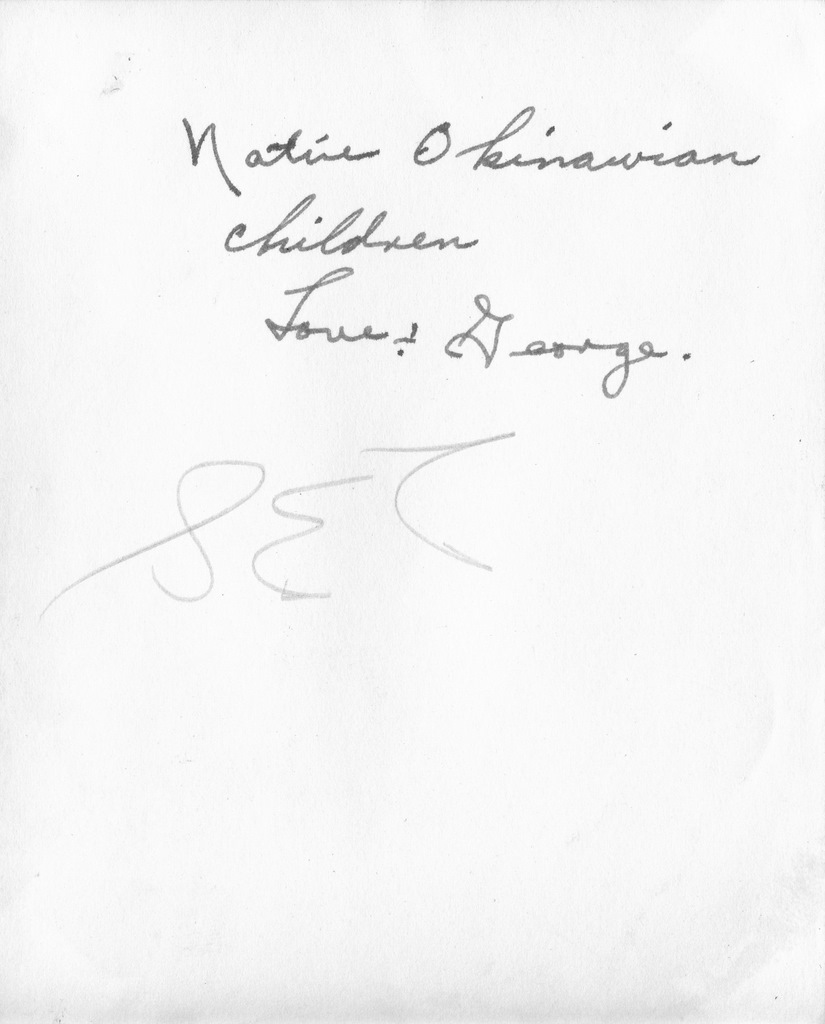 Native Okinawian
children
Love: George.
SET